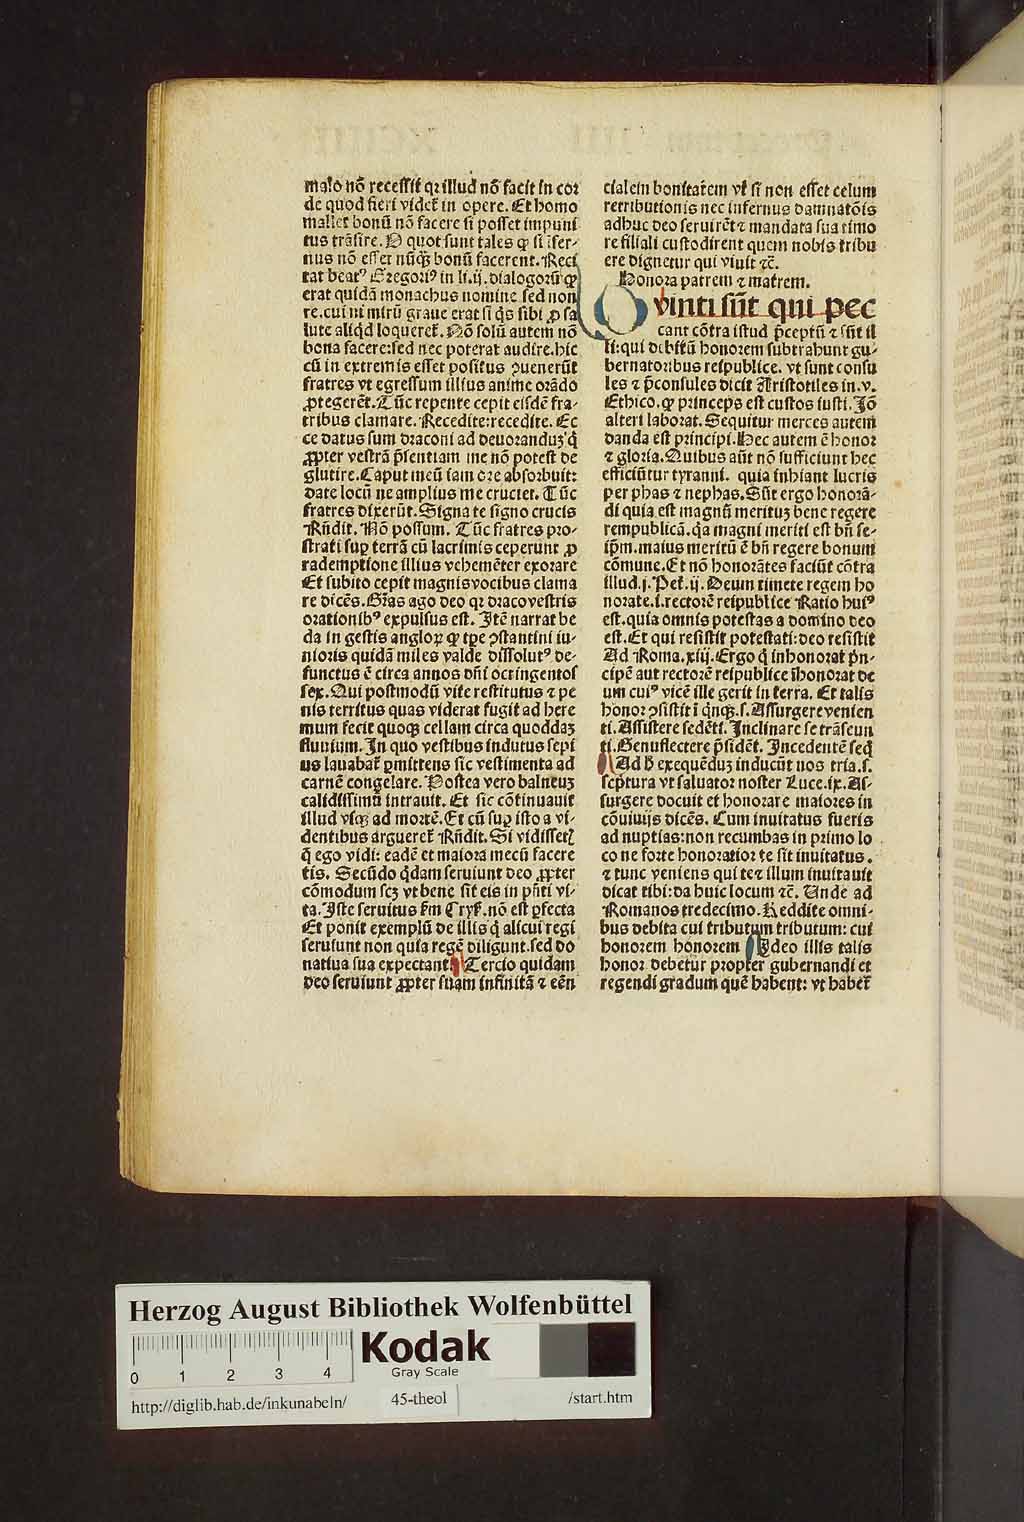 malo nō recessit qꝛ illud nō facit in cor
de quod fieri videt᷒ in opere. Et homo
mallet bonū nō facere si posset impuni
tus trāsire. O quot sunt tales ꝙ si īfer-
nus nō esset nūq̄ꝫ bonū facerent. Reci
tat beatꝰ Gregoriꝰ in li.ij. dialogorū ꝙ
erat quidā monachus nomine sed non
re. cui ni mirū graue erat si q̇s sibi ꝓ sa
lute aliqd loqueret᷒. Nō solū autem nō
bona facere: sed nec poterat audire. hic
cū in extremis esset positus ꝯuenerūt
fratres vt egressum illius anime orādo
ꝓtegerēt. Tūc repente cepit eisdē fra-
tribus clamare. Recedite: recedite. Ec
ce datus sum draconi ad deuoranduꝫ q̇
ꝓpter vestrā p̄sentiam me nō potest de
glutire. Caput meū iam ore absorbuit:
date locū ne amplius me cruciet. Tūc
fratres dixerūt. Signa te signo crucis
Rn̄dit. Nō possum. Tūc fratres pro-
strati suꝑ terrā cū lacrimis ceperunt ꝓ
rademptione illius vehemēter exorare
Et subito cepit magnis vocibus clama
re dicēs. Gr̄as ago deo qꝛ draco vestris
orationibꝰ expulsus est. Itē narrat be
da in gestis angloꝝ ꝙ tp̄e ꝯstantini iu-
nioris quidā miles valde dissolutꝰ de-
functus ē circa annos dn̄i octingentos
sex. Qui postmodū vite restitutus ⁊ pe
nis territus quas viderat fugit ad here
mum fecit quoqꝫ cellam circa quoddaꝫ
fluuium. In quo vestibus indutus sepi
us lauabat᷒ ꝑmittens sic vestimenta ad
carnē congelare. Postea vero balneuꝫ
calidissimū intrauit. Et sic cōtinuauit
illud vsqꝫ ad mortē. Et cū suꝑ isto a vi-
dentibus argueret᷒ Rn̄dit. Si vidissetꝭ
q̄ ego vidi: eadē et maiora mecū facere
tis. Secūdo q̇dam seruiunt deo ꝓpter
cōmodum scꝫ vt bene sit eis in pn̄ti vi-
ta. Iste seruitus ẜm Cryſ. nō est ꝑfecta
Et ponit exemplū de illis q̇ alicui regi
seruiunt non quia regē diligunt. sed do
natiua sua expectant. Tercio quidam
deo seruiunt ꝓpter suam infinitā ⁊ eēn
cialem bonitatem vt si non esset celum
retributionis nec infernus damnatōis
adhuc deo seruirēt ⁊ mandata sua timo
re filiali custodirent quem nobis tribu
ere dignetur qui viuit ⁊c̄.
Honora patrem ⁊ matrem.
Qvinti sūt qui pec
cant cōtra istud p̄ceptū ⁊ sūt il
li: qui debitū honorem subtrahunt gu-
bernatoribus reipublice. vt sunt consu
les ⁊ p̄consules dicit Aristotiles in .v.
Ethico. ꝙ princeps est custos iusti. Iō
alteri laborat. Sequitur merces autem
danda est principi. Hec autem ē honor
⁊ gloria. Quibus aūt nō sufficiunt hec
efficiūtur tyranni. quia inhiant lucris
per phas ⁊ nephas. Sūt ergo honorā-
di quia est magnū merituꝫ bene regere
rempublicā. q̇a magni meriti est bn̄ se-
ip̄m. maius meritū ē bn̄ regere bonum
cōmune. Et nō honorātes faciūt cōtra
illud .j. Pet᷒ .ij. Deum timete regem ho
norate. i. rectorē reipublice Ratio huiꝰ
est. quia omnis potestas a domino deo
est. Et qui resistit potestati: deo resistit
Ad Roma. xiij. Ergo q̇ inhonorat pn̄-
cipē aut rectorē reipublice īhonorat de
um cuiꝰ vicē ille gerit in terra. Et talis
honor ꝯsistit ī q̇nqꝫ. s. Assurgere venien
ti. Assistere sedēti. Inclinare se trāseun
ti. Genuflectere p̄sidēt. Incedentē seq̇
Ad h̄ exequēduꝫ inducūt nos tria. s.
scptura vt saluator noster Luce. ix. As-
surgere docuit et honorare maiores in
cōuiuijs dicēs. Cum inuitatus fueris
ad nuptias: non recumbas in primo lo
co ne forte honoratior te sit inuitatus.
⁊ tunc veniens qui te ⁊ illum inuitauit
dicat tibi: da huic locum ⁊c̄. Unde ad
Romanos tredecimo. Reddite omni-
bus debita cui tributum tributum: cui
honorem honorem Ideo illis talis
honor debetur propter gubernandi et
regendi gradum quē habent: vt habet᷒
Herzog August Bibliothek Wolfenbüttel
0 1 2 3 4
Kodak
Gray Scale
http://diglib.hab.de/inkunabeln/ 45-theol /start.htm